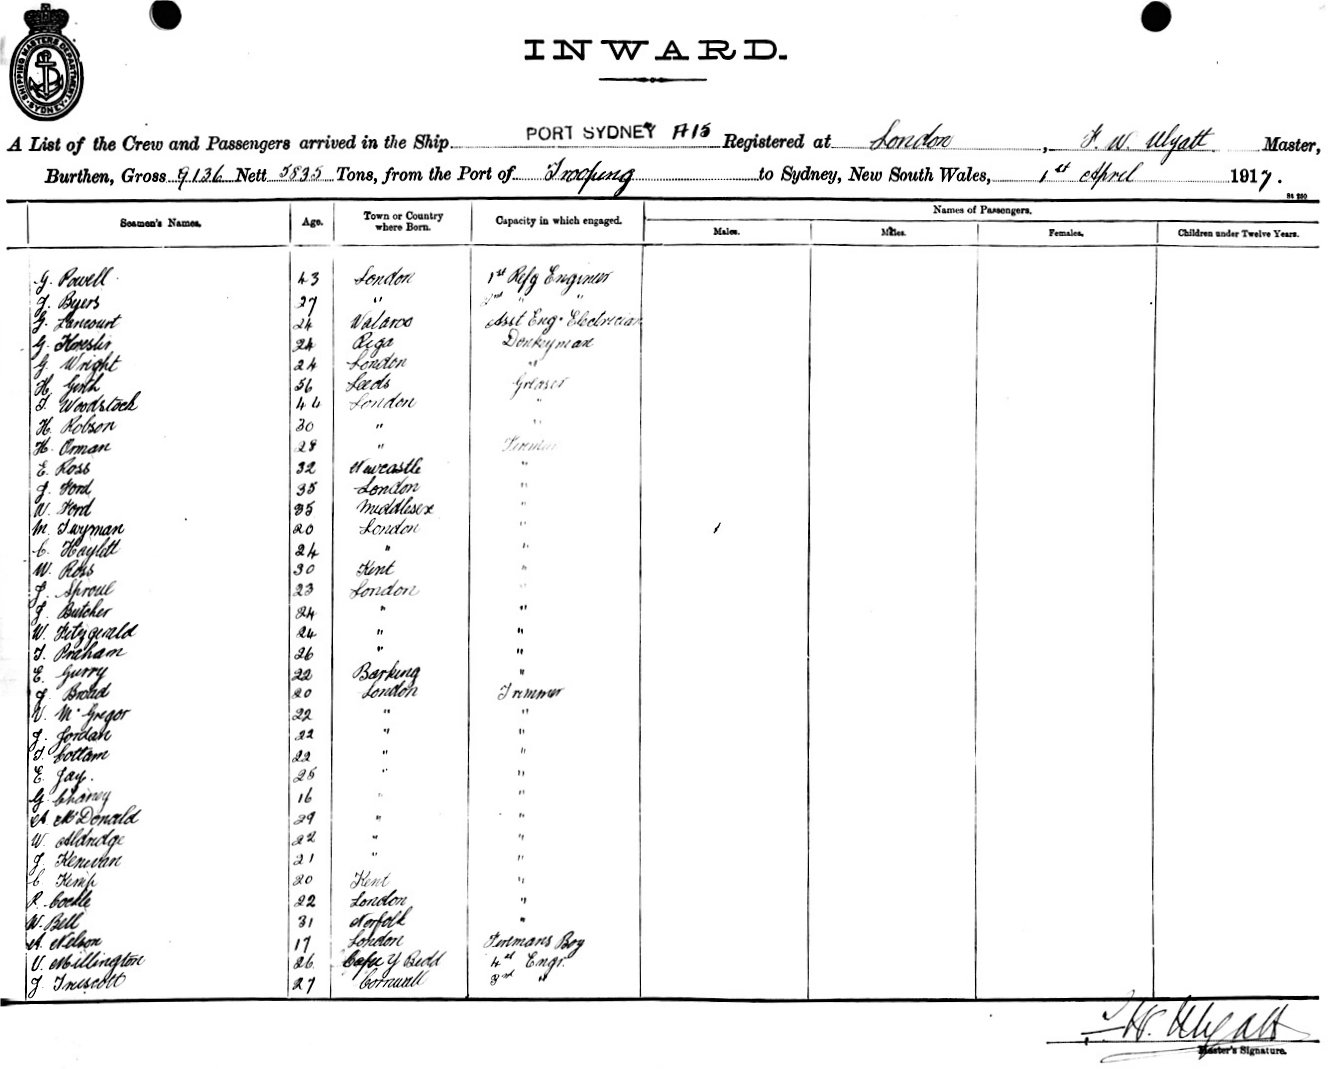 SHIPPING MASTERS DEPARTMENT SYDNEY
INWARD.
A List of the Crew and Passengers arrived in the Ship PORT SYDNEY A15 Registered at London, F. W. Wyatt Master,
Burthen, Gross 9136 Nett 5835 Tons, from the Port of Trooping to Sydney, New South Wales, 1st April 1917.
Seamen's Names. Age. Town or Country where Born. Capacity in which engaged. Names of Passengers.
Males. Males. Females. Children under Twelve Years.
G. Powell 43 London 1st Refg Engineer
J. Byers 27 " 2nd " "
G. Lancourt 24 Asst Eng. Electrician
G. 24 Riga Donkeyman
G. Wright 24 London "
H. Girth 56 Leeds Greaser
T. Woodstock 44 London "
H. Robson 30 " "
H. Orman 28 " Fireman
E. Ross 32 Newcastle "
J. Ford 35 London "
W. Ford 35 Middlesex "
M. Twyman 20 London "
C. Haylett 24 " "
W. Ross 30 Kent "
J. Sproul 23 London "
J. Butcher 24 " "
W. Fitzgerald 24 " "
T. Praham 26 " "
E. Gurry 22 Barking "
J. Broad 20 London Trimmer
V. McGregor 22 " "
J. Jordan 22 " "
T. Cottam 22 " "
E. Jay. 25 " "
G. Chaney 16 " "
A. McDonald 29 " "
W. Aldridge 22 " "
J. Kenevan 21 " "
C. Kemp 20 Kent "
R. Cockle 22 London "
W. Bell 31 Norfolk "
A. Nelson 17 London Firemans Boy
V. Millington 26 4th Engr.
J. Triscott 27 Cornwall 3rd "
F. W. Wyatt
Master's Signature.